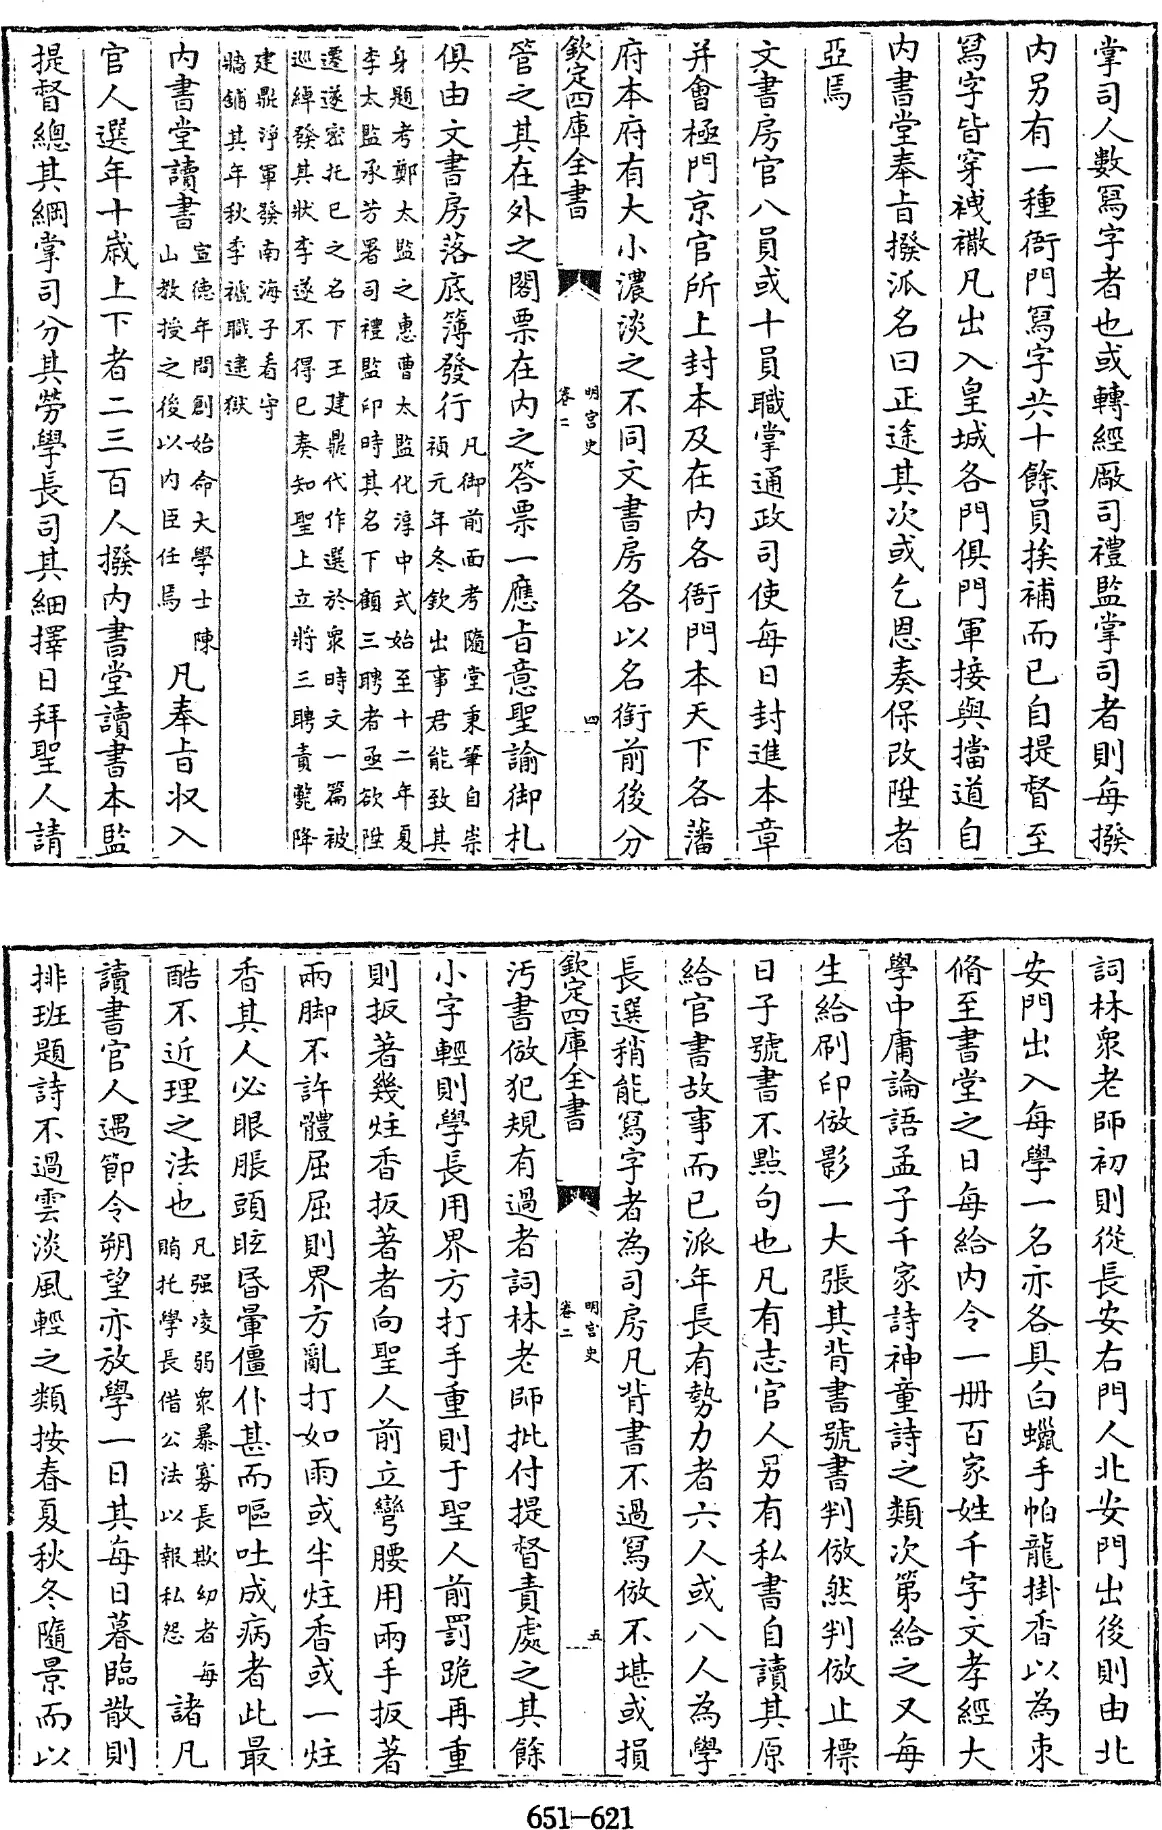 掌司人數寫字者也或轉經厰司禮監掌司者則每撥
内另有一種衙門寫字共十餘員挨補而已自提督至
寫字皆穿凡出入皇城各門俱門軍接與擋道自
内書堂奉㫖撥派名曰正途其次或乞恩奏保改陞者
亞焉
文書房官八員或十員職掌通政司使每日封進本章
并會極門京官所上封本及在内各衙門本天下各藩
府本府有大小濃淡之不同文書房各以名銜前後分
欽定四庫全書
明宫史
卷二
四
管之其在外之閣票在内之答票一應㫖意聖諭御札
俱由文書房落底簿發行
凡御前面考隨堂秉筆自崇
禎元年冬欽出事君能致其
身題考鄭太監之惠曹太監化淳中式始至十二年夏
李太監承芳署司禮監印時其名下顧三聘者亟欲陞
遷遂密托已之名下王建鼎代作選於衆時文一篇被
巡綽發其狀李遂不得已奏知聖上立將三聘責斃降
建鼎淨軍發南海子看守
牆鋪其年秋李褫職逮獄
内書堂讀書
宣德年間創始命大學士陳
山教授之後以内臣任焉
凡奉㫖収入
官人選年十歲上下者二三百人撥内書堂讀書本監
提督總其綱掌司分其勞學長司其細擇日拜聖人請
詞林衆老師初則從長安右門入北安門出後則由北
安門出入每學一名亦各具白蠟手帕龍掛香以為束
脩至書堂之日每給内令一冊百家姓千字文孝經大
學中庸論語孟子千家詩神童詩之類次第給之又每
生給刷印倣影一大張其背書號書判倣然判倣止標
日子號書不點句也凡有志官人另有私書自讀其原
給官書故事而已派年長有勢力者六人或八人為學
長選稍能寫字者為司房凡背書不過寫倣不堪或損
欽定四庫全書
明宫史
卷二
五
汚書倣犯規有過者詞林老師批付提督責處之其餘
小字輕則學長用界方打手重則于聖人前罰跪再重
則扳著幾炷香扳著者向聖人前立彎腰用兩手扳著
兩脚不許體屈屈則界方亂打如雨或半炷香或一炷
香其人必眼脹頭眩昏暈僵仆甚而嘔吐成病者此最
酷不近理之法也
凡强凌弱衆暴寡長欺幼者每
賄托學長借公法以報私怨
諸凡
讀書官人遇節令朔望亦放學一日其每日暮臨散則
排班題詩不過雲淡風輕之類按春夏秋冬隨景而以
651-621